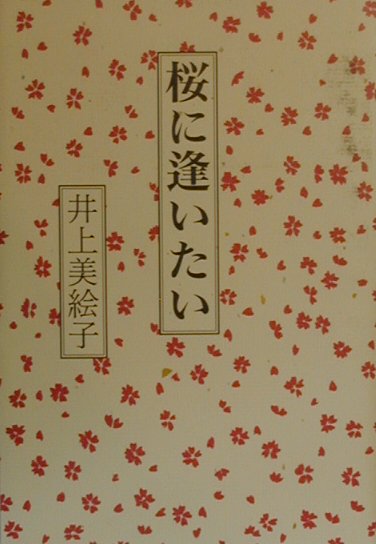 桜に逢いたい
井上美絵子